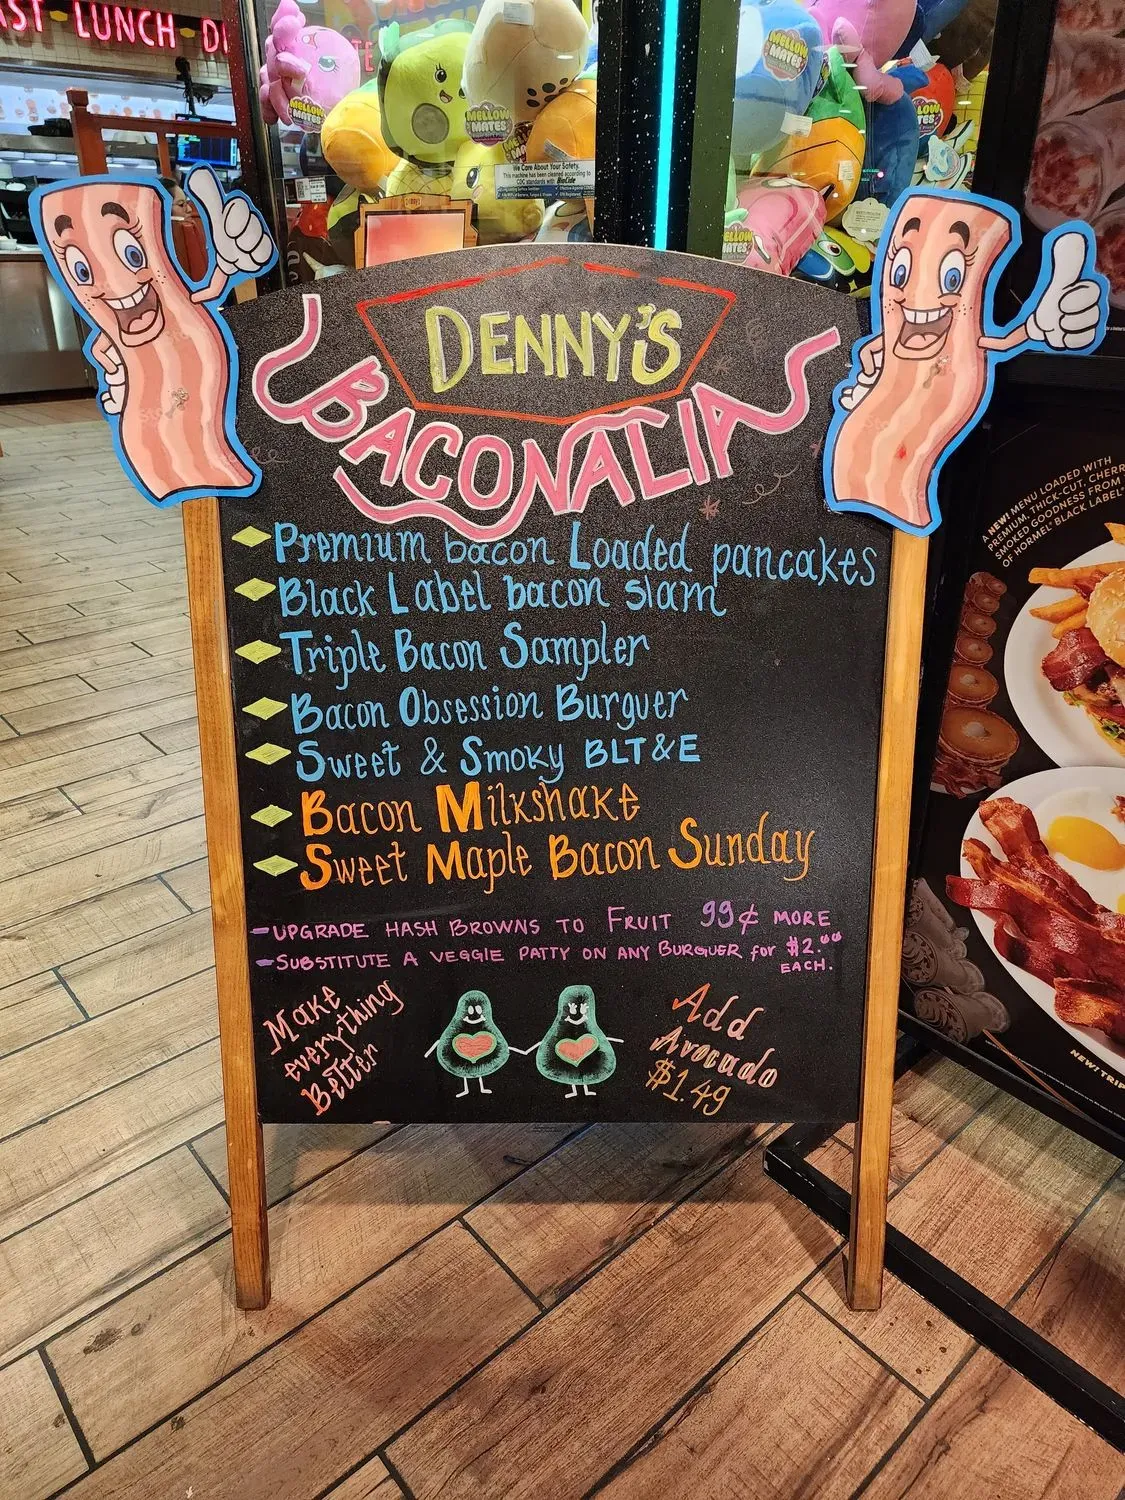 AST · LUNCH · DI
MELLOW MATES
MELLOW MATES
MELLOW MATES
MELLOW MATES
MELLOW
We Care About Your Safety.
This machine has been cleaned according to
CDC standards with BioCide
DENNY'S
BACONALIA
Premium bacon Loaded pancakes
Black Label bacon slam
Triple Bacon Sampler
Bacon Obsession Burguer
Sweet & Smoky BLT&E
Bacon Milkshake
Sweet Maple Bacon Sunday
-UPGRADE HASH BROWNS TO FRUIT 99¢ MORE
-SUBSTITUTE A VEGGIE PATTY ON ANY BURGUER for $2.00
EACH.
Make
everything
Better
Add
Avocado
$1.49
A NEW! MENU LOADED WITH
PREMIUM, THICK-CUT, CHERR
SMOKED GOODNESS FROM
OF HORMEL® BLACK LABEL®
NEW! TRIP